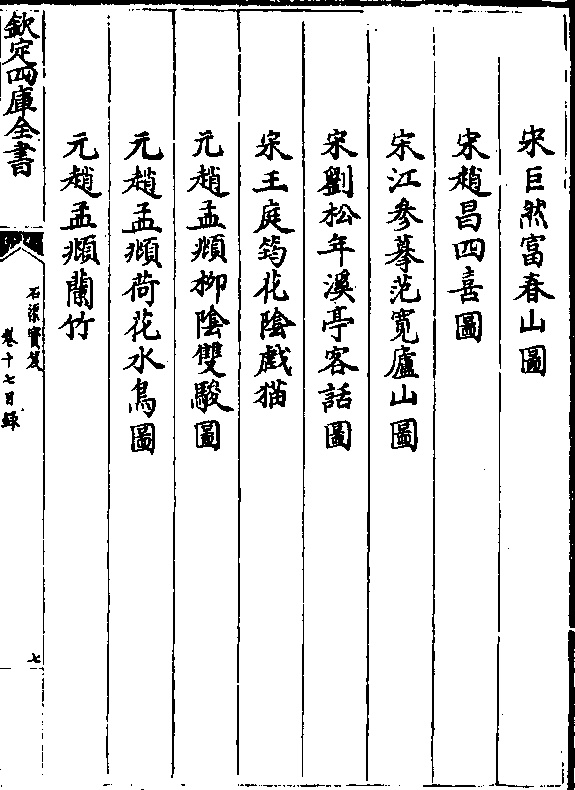 宋巨然富春山圖
宋趙昌四喜圖
宋江參摹范寛廬山圖
宋劉松年溪亭客話圖
宋王庭筠花陰戲猫
元趙孟頫柳陰雙駿圖
元趙孟頫荷花水鳥圖
元趙孟頫蘭竹
欽定四庫全書
石渠寶笈
卷十七目録
七